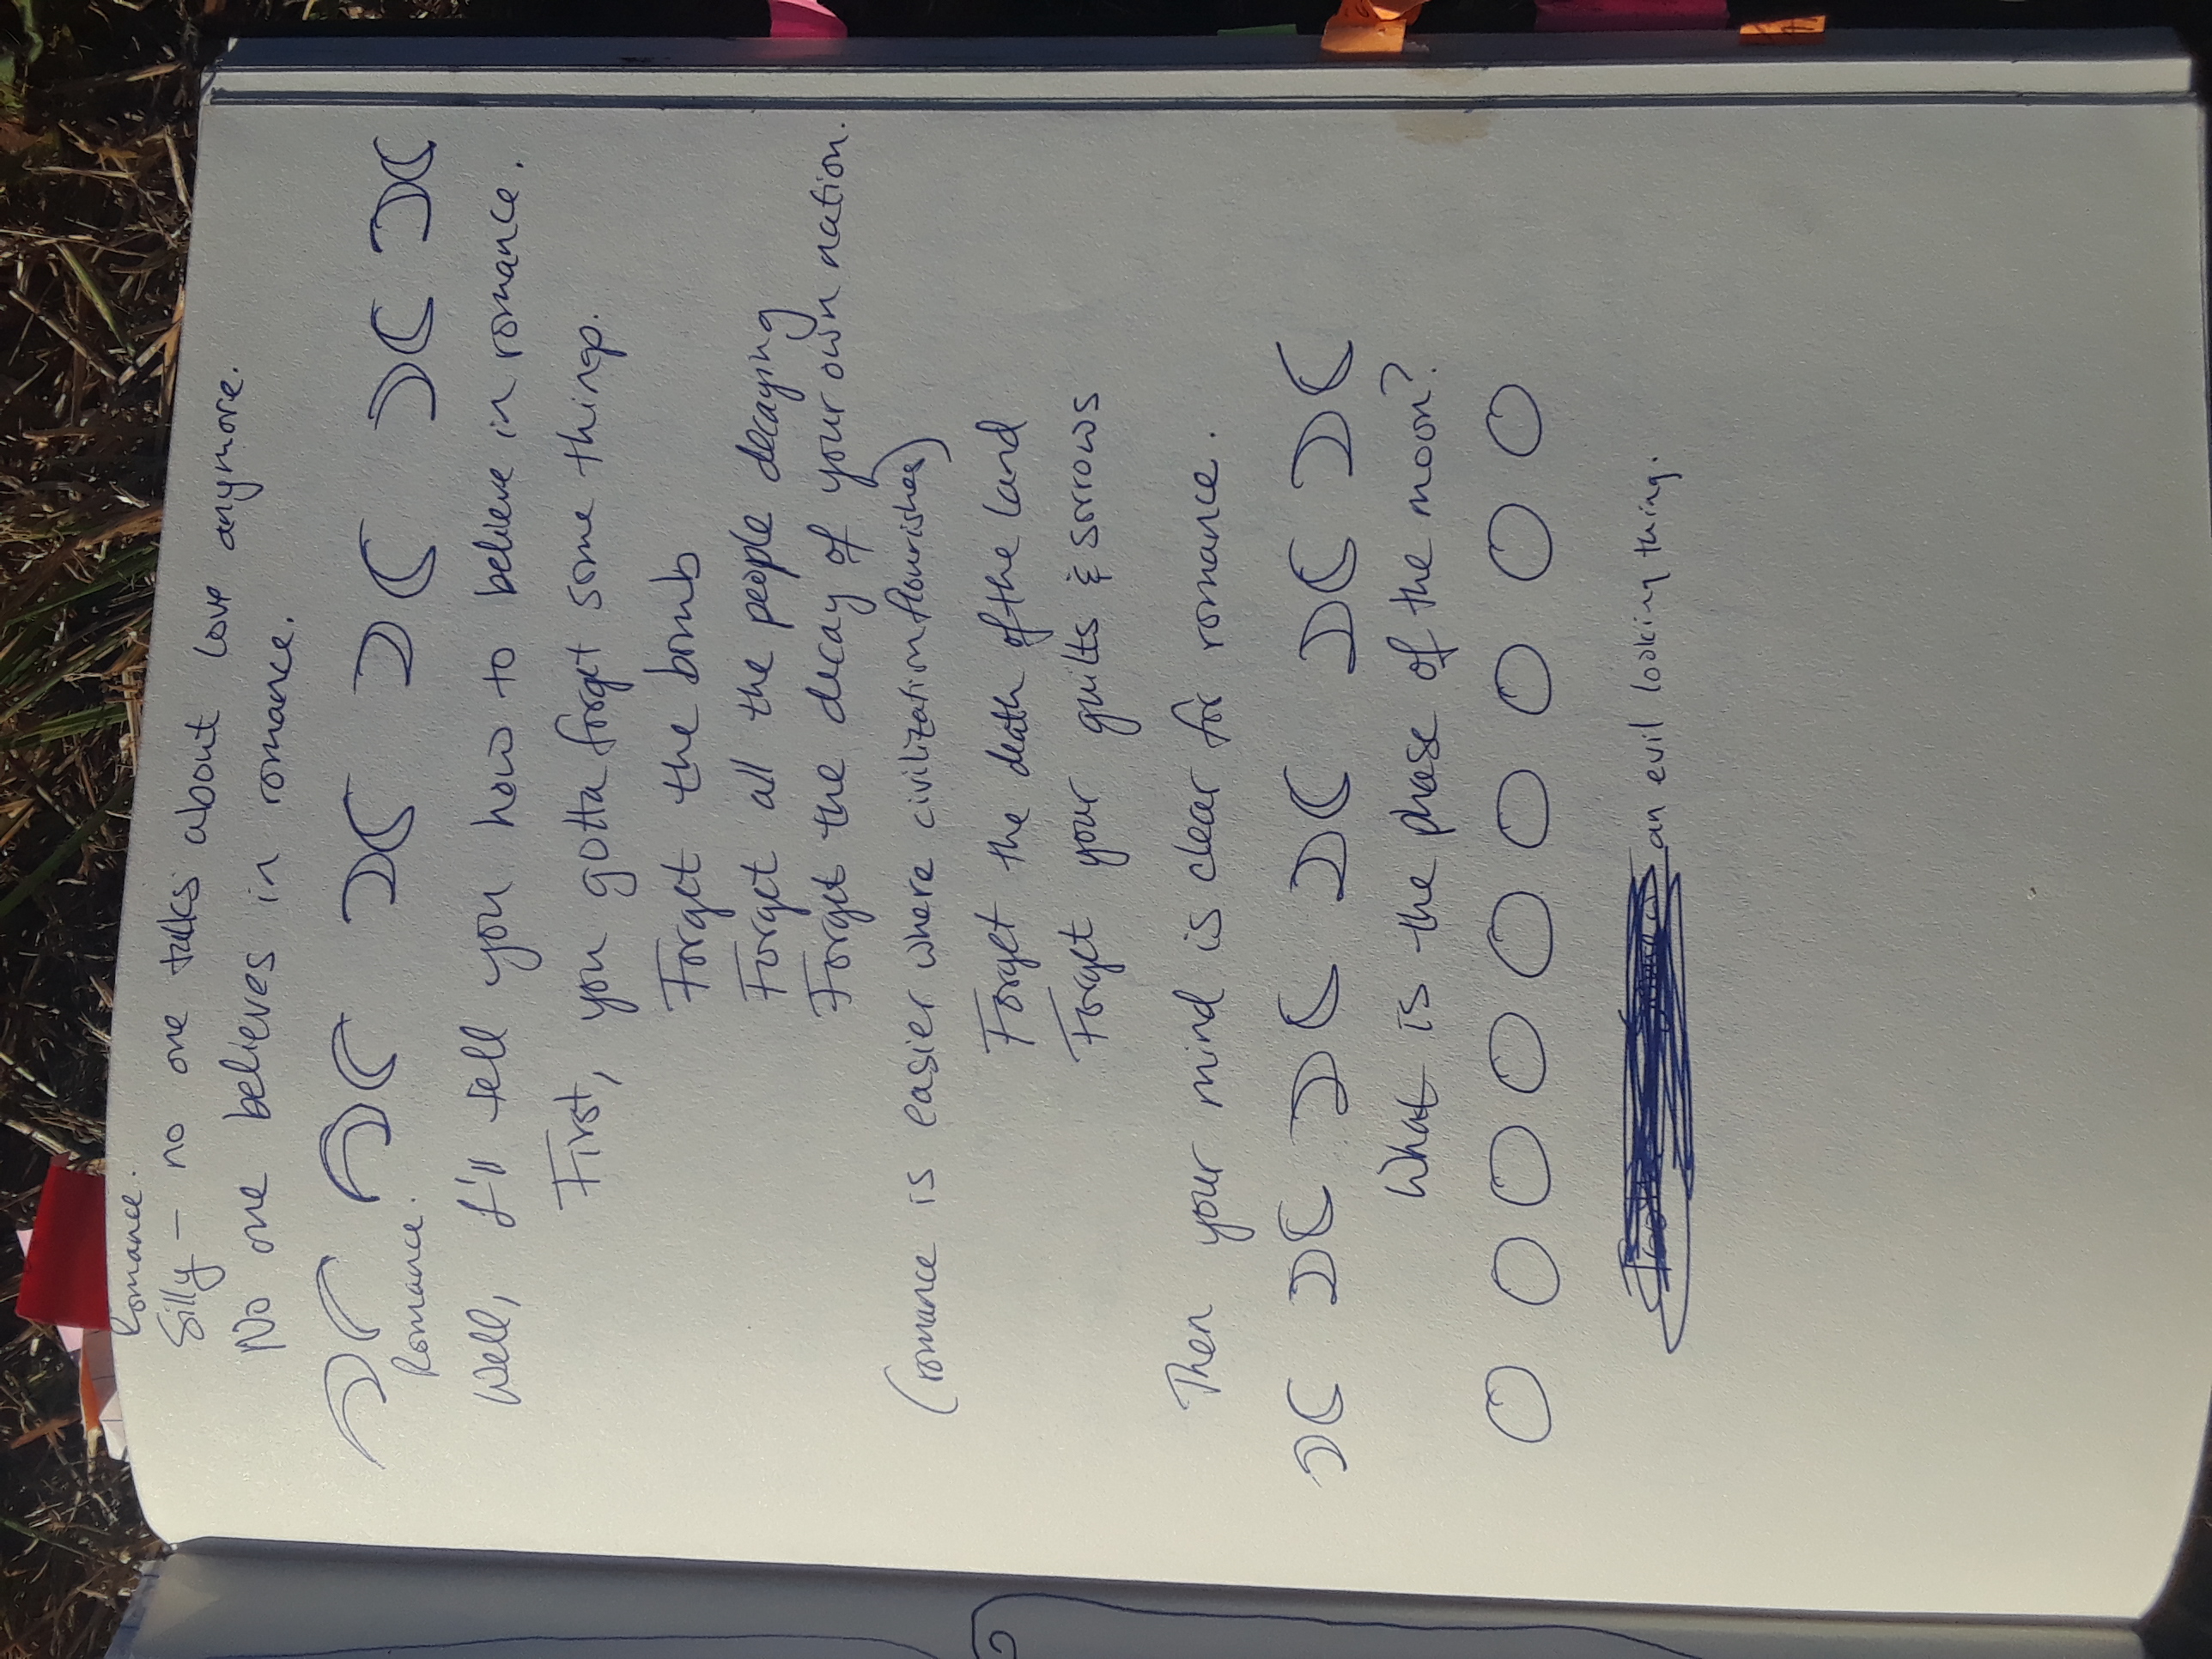 Romance.
Silly — no one talks about love anymore.
No one believes in romance.
Romance.
Well, I'll tell you how to believe in romance.
First, you gotta forget some things.
Forget the bomb
Forget all the people decaying
Forget the decay of your own nation.
(romance is easier where civilization flourishes)
Forget the death of the land
Forget your guilts & sorrows
Then your mind is clear for romance.
What is the phase of the moon?
an evil looking thing.